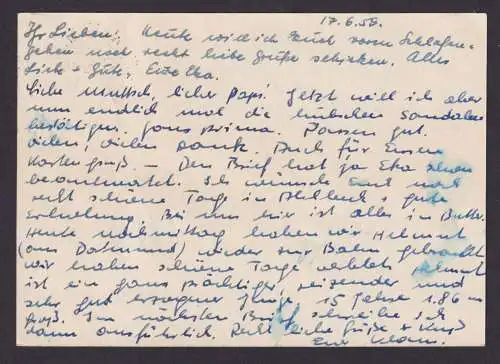 17.6.58.
Ihr Lieben! Heute will ich Euch vorm Schlafen-
gehen noch recht liebe Grüße schicken. Alles
Liebe + Gute, Eure Eka.
Liebe Mutsch, lieber Papi! Jetzt will ich aber
nun endlich mal die hübschen Sandalen
bestätigen. Ganz prima. Passen gut.
Vielen, vielen Dank. Auch für Euren
Kartengruß. - Den Brief hat ja Eka schon
beantwortet. Ich wünsche Euch noch
recht schöne Tage in + gute
Erholung. Bei uns hier ist alles in Butter.
Heute nachmittag haben wir Helmut
(aus Dortmund) wieder zur Bahn gebracht
wir haben schöne Tage verlebt. Helmut
ist ein ganz prächtiger, reizender und
sehr gut erzogener Junge. 15 Jahre 1.86 m
groß. Im nächsten Brief schreibe ich
dann ausführlich. Recht liebe Grüße + Kuß
Euer Klaus.